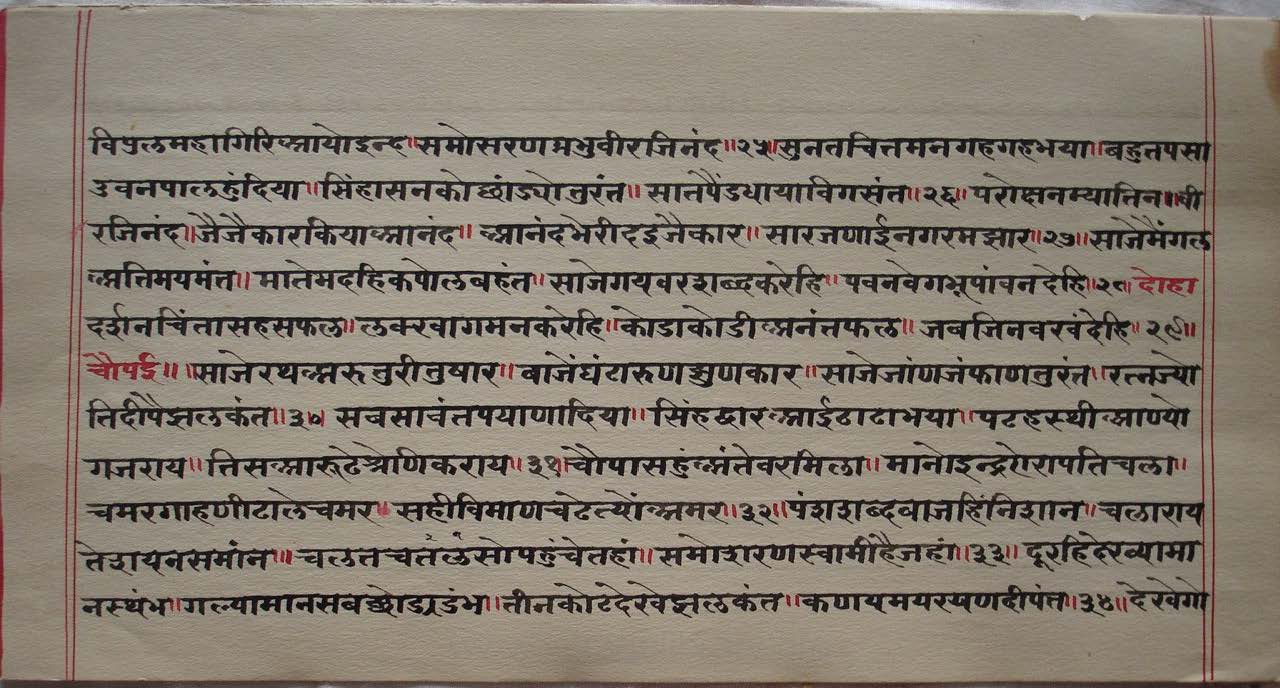 विपुलमहागिरिआयोइन्द॥समोसरणप्रभुवीरजिनंद॥२५॥सुनतचित्तमनगहगहभया॥बहुतपसा
उवनपालहुंदिया॥सिंहासनकोछांड्योतुरंत॥सातपैंडधायाविगसंत॥२६॥परोक्षनम्यातिन॥वी
रजिनंद॥जैजैकारकियाआनंद॥आनंदभेरीदइजैकार॥सारजणाईनगरमझार॥२७॥साजेमैंगल
अतिमयमंत॥मातेमदहिकपोलवहंत॥साजेगयवरशब्दकरेहि॥पवनवेगभूपांवनदेहि॥२८॥दोहा
दर्शनचिंतासहसफल॥लक्खागमनकरेहि॥कोडाकोडीअनंतफल॥जबजिनवरवंदेहि॥२९॥
चौपई॥साजेरथअरुतुरीतुषार॥वाजेंघंटारुणझुणकार॥साजेजांणजंफाणतुरंत॥रत्नज्यो
तिदीपैझलकंत॥३०॥सबसावंतपयाणादिया॥सिंहद्वारआईठाठाभया॥पटहस्थीआण्यो
गजराय॥तिसआरूढेश्रेणिकराय॥३१॥चौपासहुंअंतेवरमिला॥मानोइन्द्रऐरापतिचला॥
चमरगाहणीढालेचमर॥सहीविमाणचढेत्योंअमर॥३२॥पंशशब्दवाजहिंनिशान॥चलाराय
तेरायनसमांन॥चलतचतलंसोपहुंचेतहां॥समोशरणस्वामीहैजहां॥३३॥दूरहिदेख्यामा
नस्थंभ॥गल्यामानसबछोडाडंभ॥तीनकोटदेखेझलकंत॥कणयमयरयणदीपंत॥३४॥देखेगो